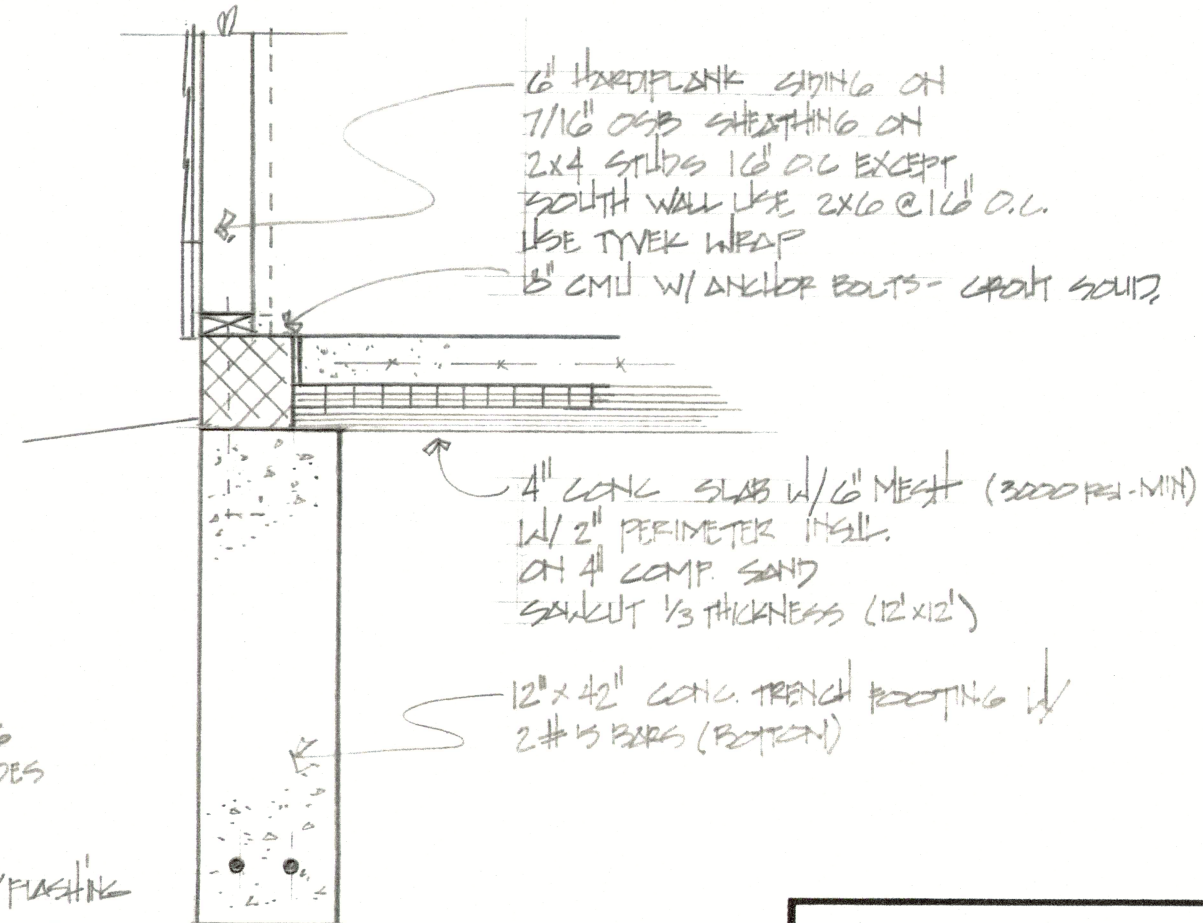 6" HARDIPLANK SIDING ON
7/16" OSB SHEATHING ON
2x4 STUDS 16" O.C EXCEPT
SOUTH WALL USE 2x6 @ 16" O.C.
USE TYVEK WRAP
8" CMU W/ ANCHOR BOLTS - GROUT SOLID.
4" CONC SLAB W/ 6" MESH (3000 PSI-MIN)
W/ 2" PERIMETER INSUL.
ON 4" COMP. SAND
SAWCUT 1/3 THICKNESS (12'x12')
12" x 42" CONC. TRENCH FOOTING W/
2 # 5 BARS (BOTTOM)
FLASHING